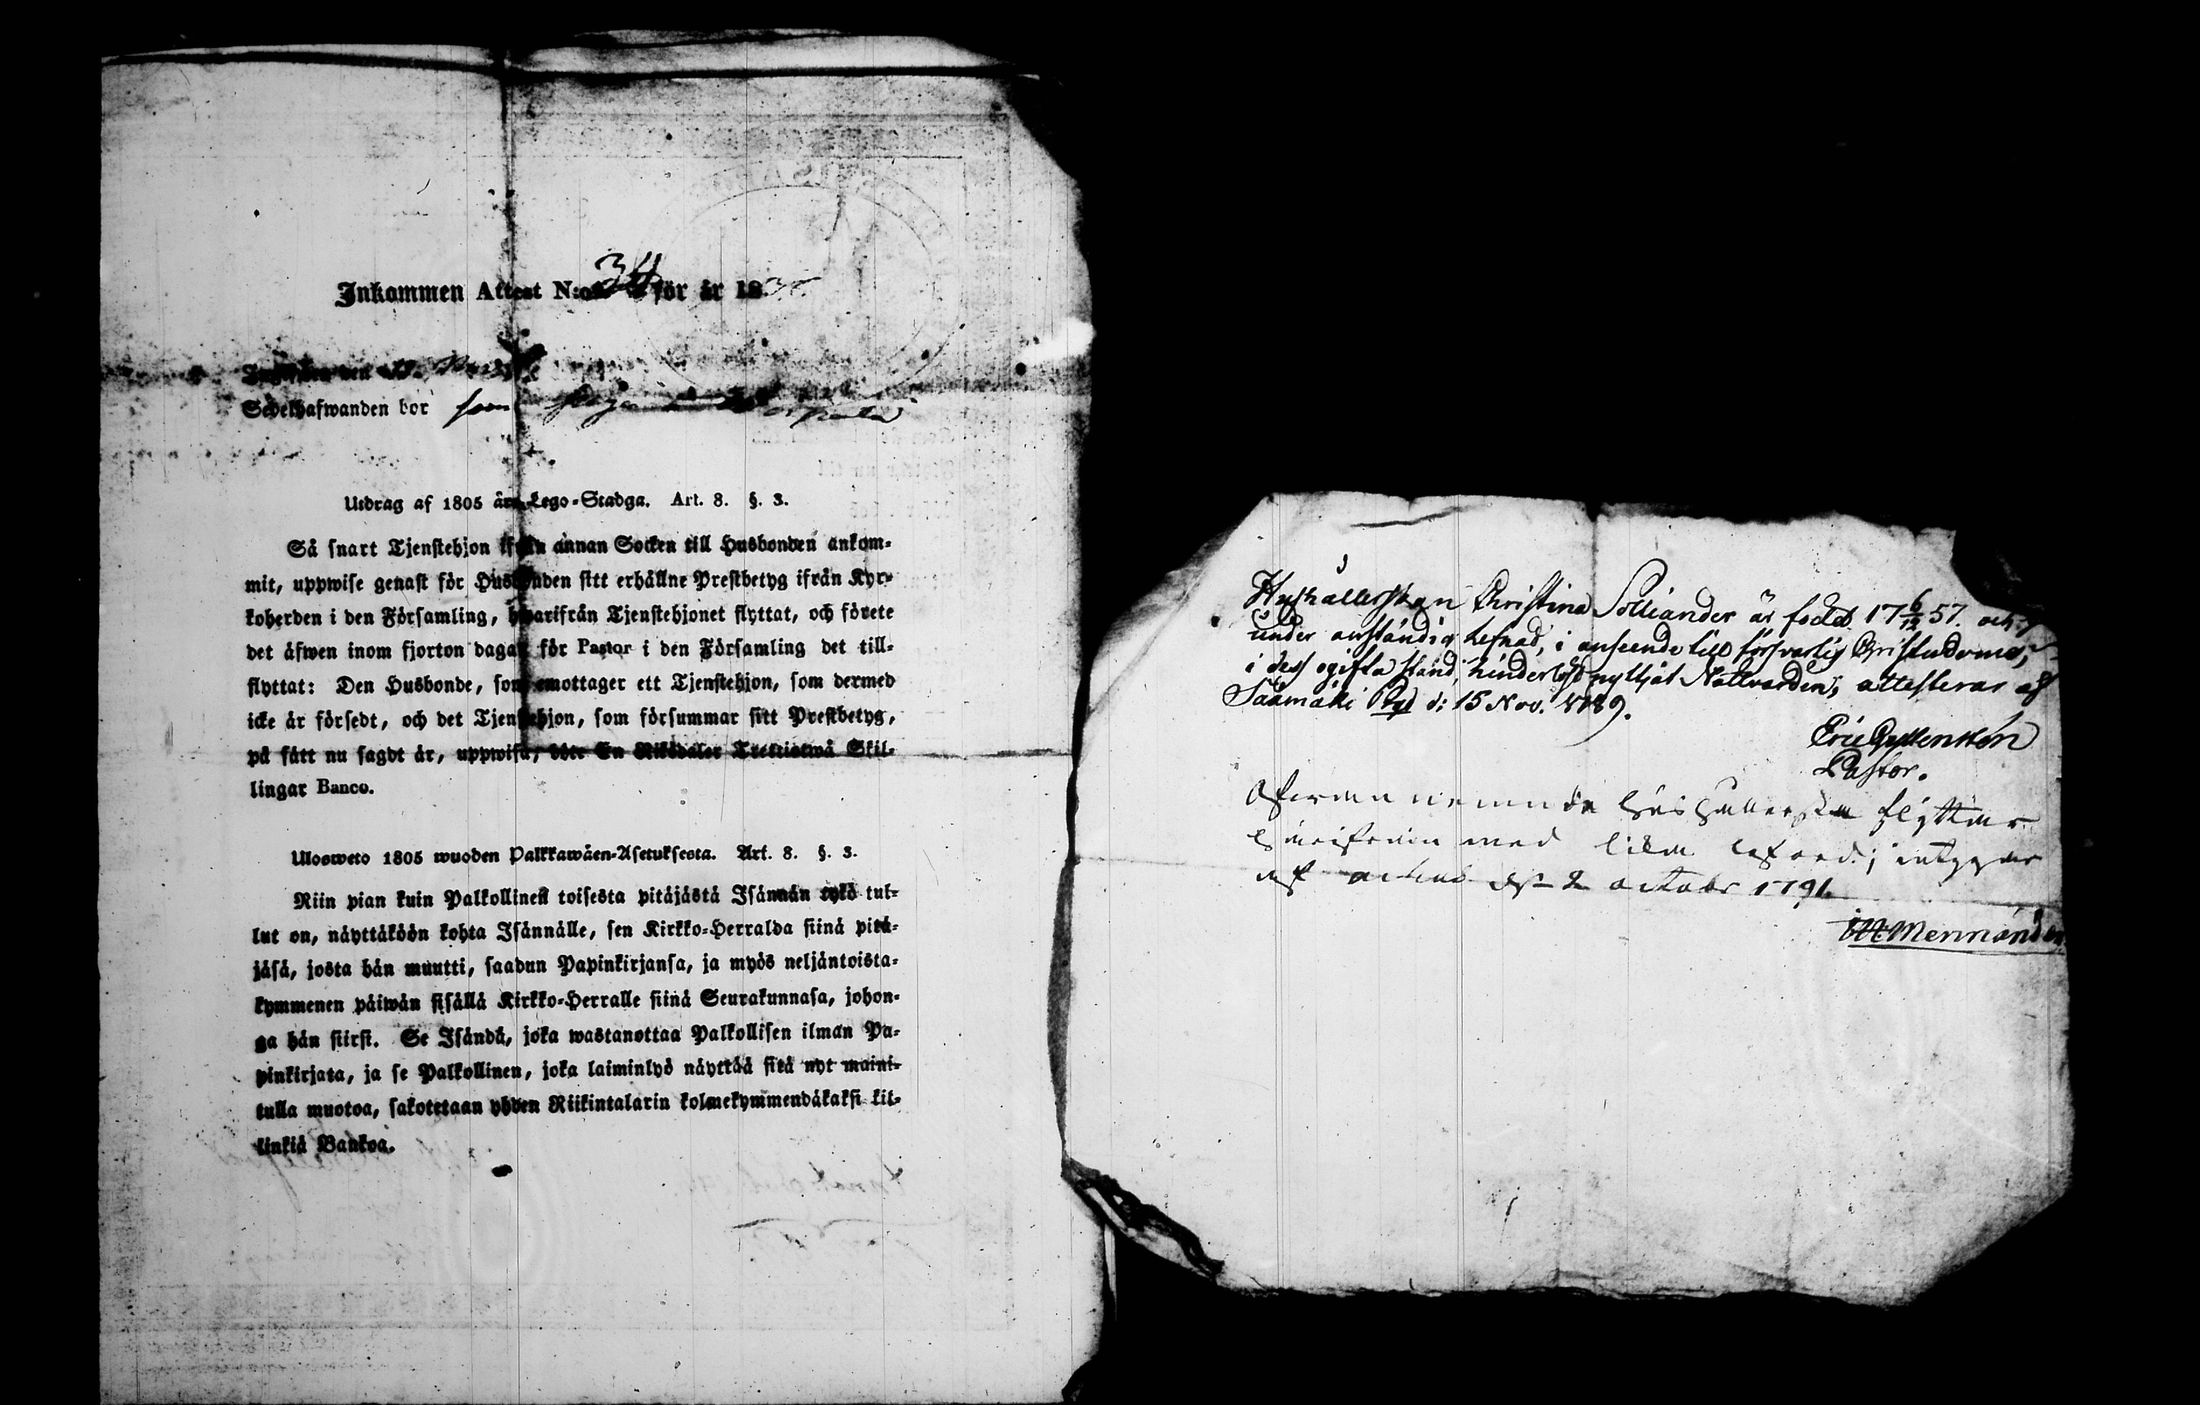 Inkommen Attest N:o 34 för år 183
Sedelhafwanden bor som
Utdrag af 1805 års Lego-Stadga. Art. 8. §. 3.
Så snart Tjenstehjon ifrån annan Socken till Husbonden ankom-
mit, uppwise genast för Husbonden sitt erhållne Prestbetyg ifrån Kyr-
koherden i den Församling, hwarifrån Tjenstehjonet flyttat, och förete
det äfwen inom fjorton dagar för Pastor i den Församling det till-
flyttat: Den Husbonde, som emottager ett Tjenstehjon, som dermed
icke är försedt, och det Tjenstehjon, som försummar sitt Prestbetyg,
på sätt nu sagdt är, uppwisa, böte En Riksdaler Trettiotwå Skil-
lingar Banco.
Ulosweto 1805 wuoden Palkkawäen-Asetuksesta. Art. 8. §. 3.
Niin pian kuin Palkollinen toisesta pitäjästä Isännän tykö tul-
lut on, näyttäköön kohta Isännälle, sen Kirkko-Herralda siinä pitä-
jäsä, josta hän muutti, saadun Papinkirjansa, ja myös neljäntoista-
kymmenen päiwän sisällä Kirkko-Herralle siinä Seurakunnasa, johon-
ga hän siirsi. Se Isändä, joka wastanottaa Palkollisen ilman Pa-
pinkirjata, ja se Palkollinen, joka laiminlyö näyttää sitä nyt maini-
tulla muotoa, sakotetaan yhden Riikintalarin kolmekymmendäkaksi kil-
linkiä Bankoa.
Hushållerskan Christina Polliander är född 17 6/12 57. och
under anständig lefnad, i anseende till försvarlig Christendome,
i dess ogifta stånd, hinderlöst nyttjat Nattvarden, attesterar af
Säämäki Pgd d: 15 Nov. 1789.
Eric Gyllenstén
Pastor.
Ofvannemnde hushållerska flyttar
härifrån med lika loford; intygar
af den 2 octobr 1791.
Mennander